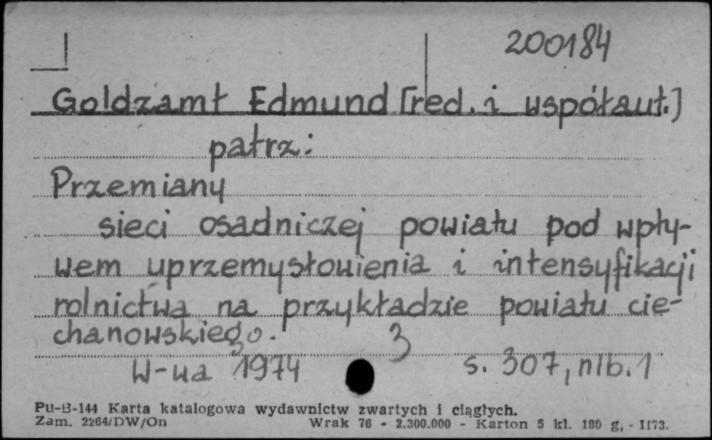 200184
Goldzamt Edmund [red. i współaut.]
patrz:
Przemiany
sieci osadniczej powiatu pod wpły-
wem uprzemysłowienia i intensyfikacji
rolnictwa na przykładzie powiatu cie-
chanowskiego. 3
W-wa 1974 s. 307, nlb. 1
Pu-B-144 Karta katalogowa wydawnictw zwartych i ciągłych.
Zam. 2264/DW/On Wrak 76 - 2.300.000 - Karton 5 kl. 180 g, - 1173.